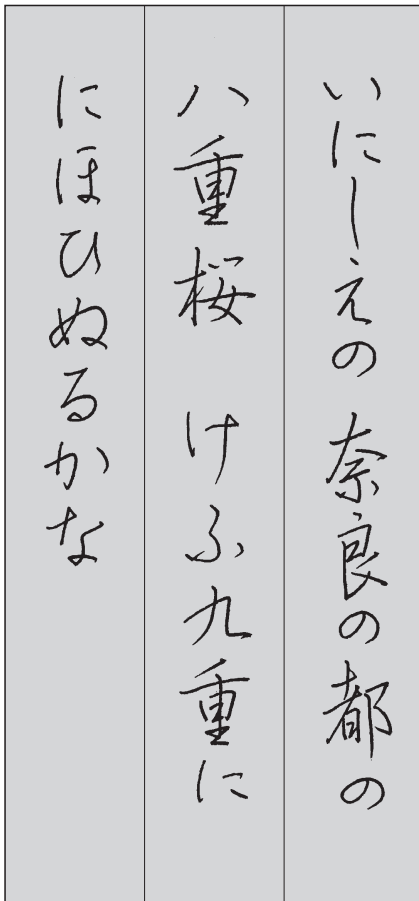 いにしえの 奈良の都の
八重桜 けふ九重に
にほひぬるかな